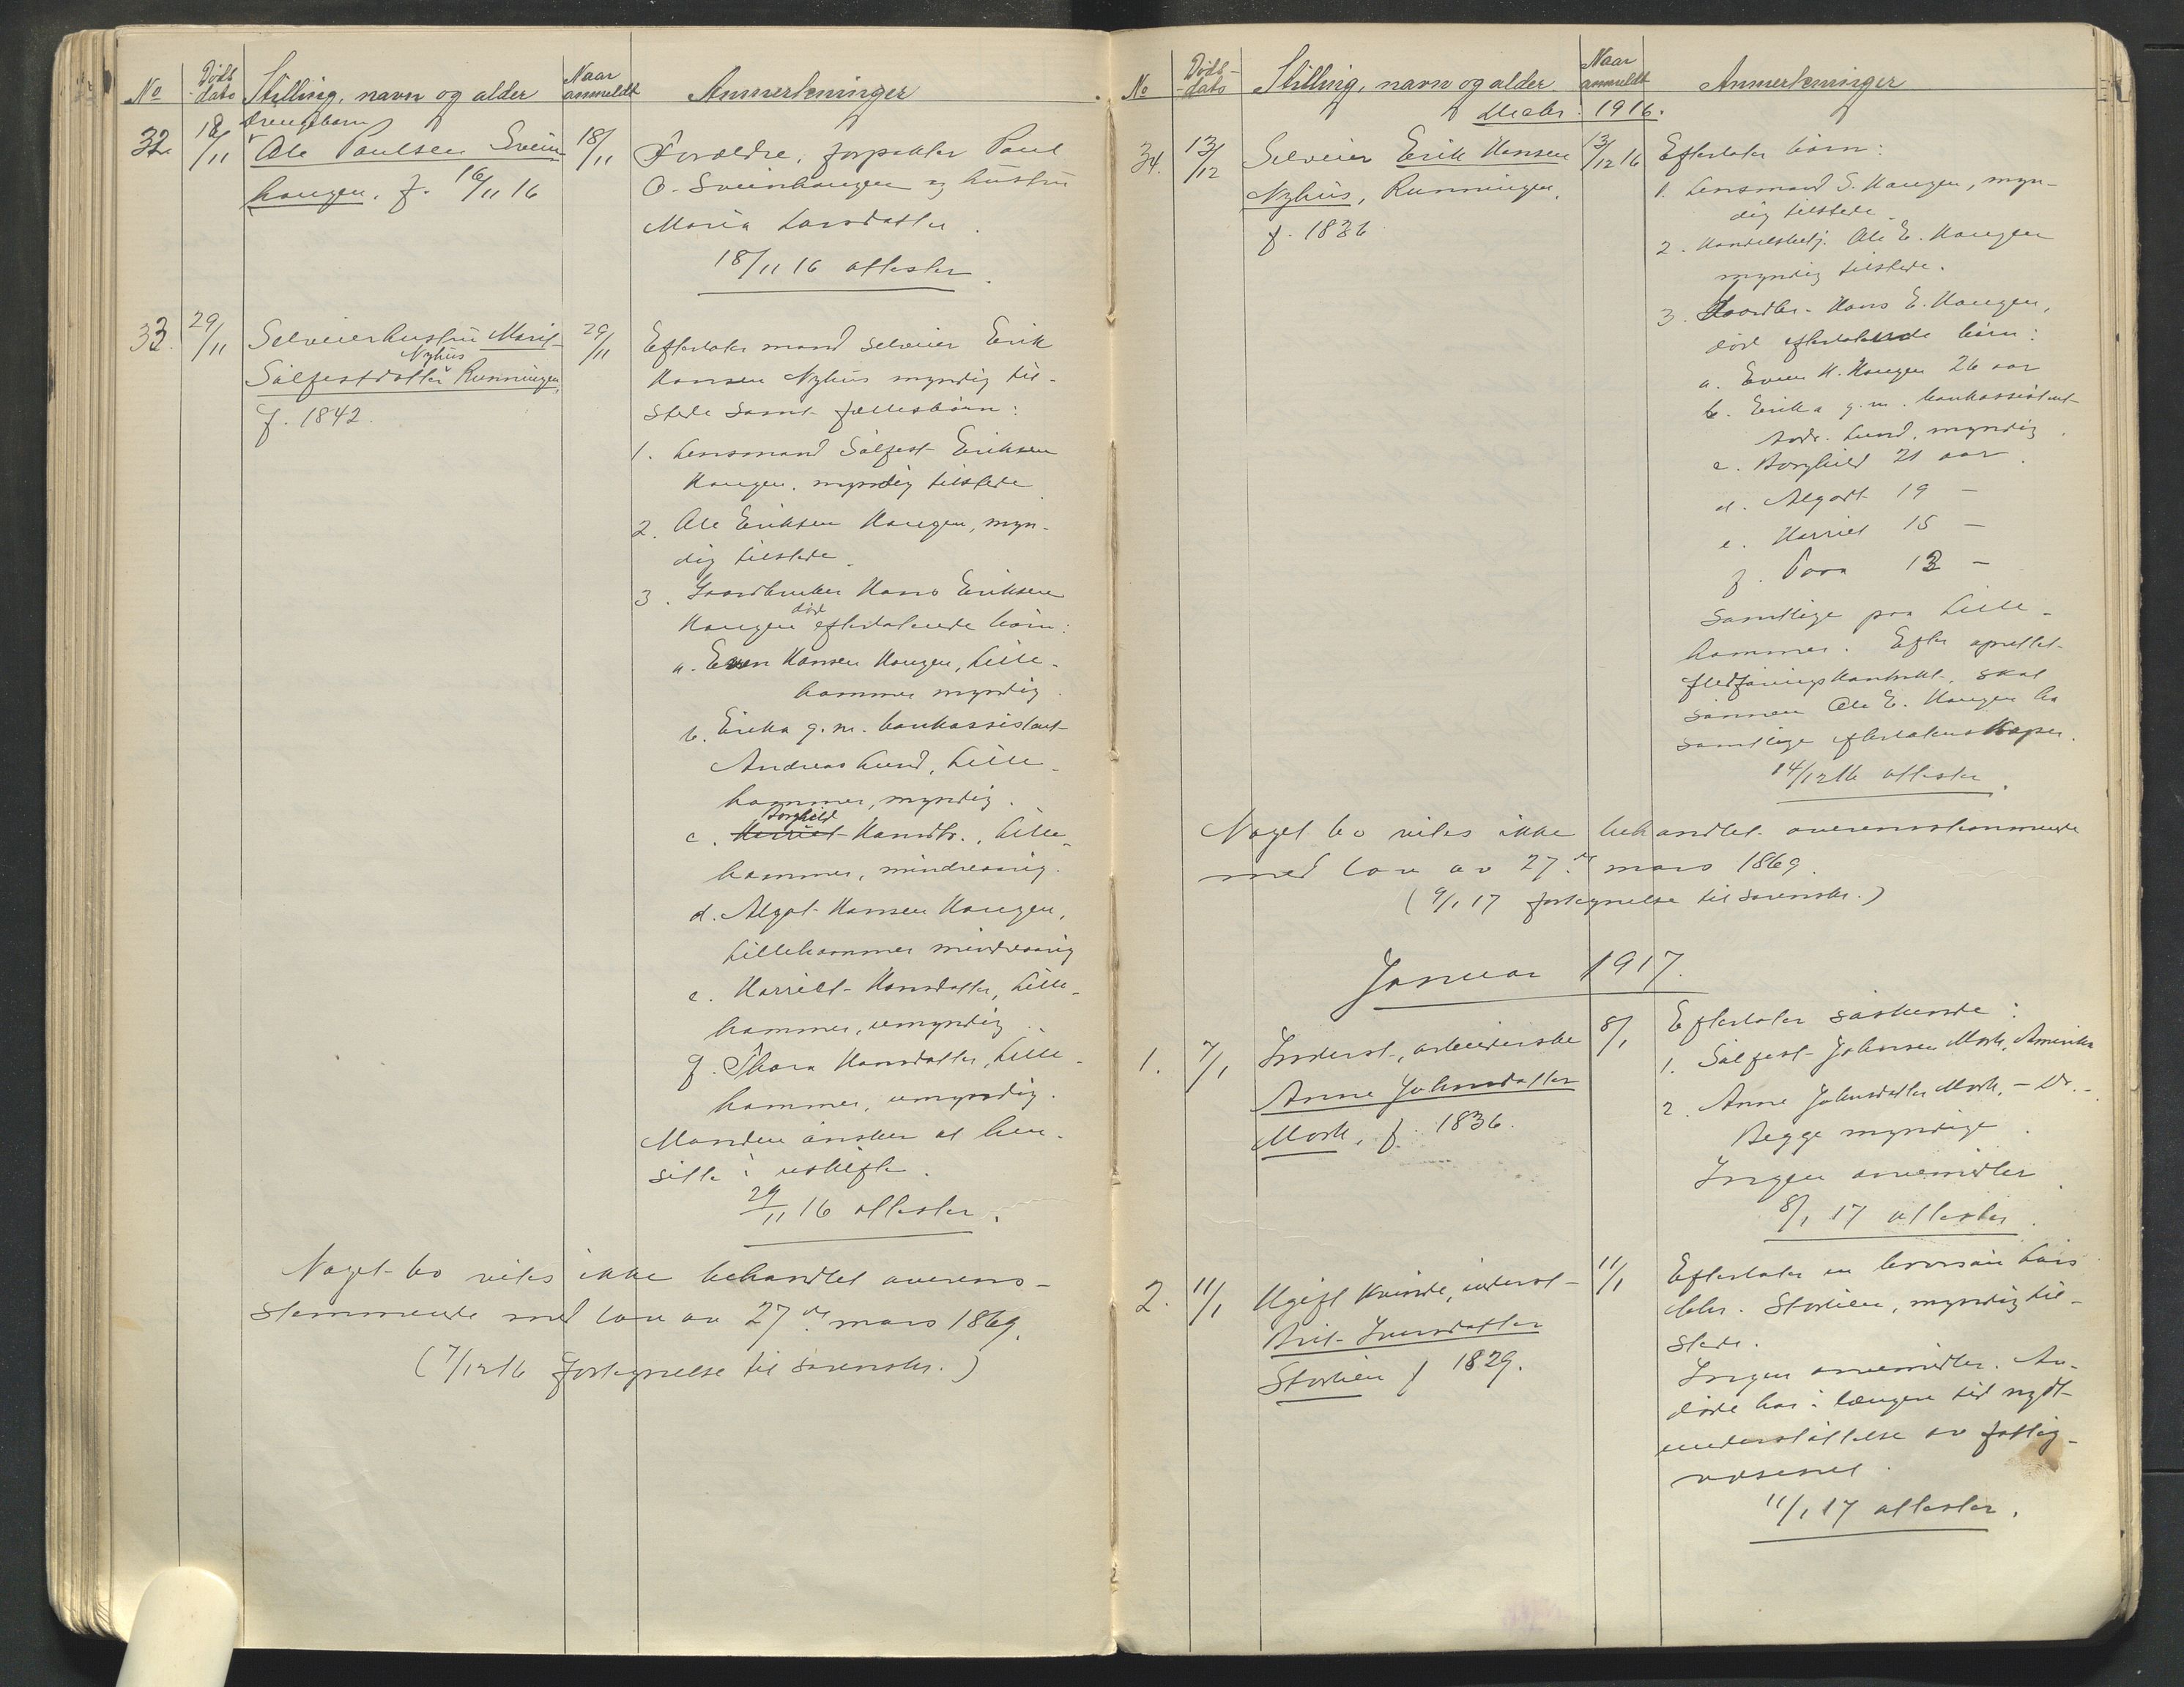 No
Døds-
dato
Stilling, navn og alder
Naar
anmeldt
Anmerkninger
32.
18/11
drengebarn
Ole Paulsen Svein-
haugen, f. 16/11 16
18/11
Forældre, forpakter Paul
O. Sveinhaugen og hustru
Maria Larsdatter.
18/11 16 attester.
33.
29/11
Selveierhustru Marit
Nyhus
Sålfestdatter Runningen,
f. 1842.
29/11
Efterlater mand selveier Erik
Hansen Nyhus myndig til-
stede samt fællesbørn:
1. Lensmand Sålfest Eriksen
Haugen, myndig tilstede
2. Ole Eriksen Haugen, myn-
dig tilstede.
3. Gaardbruker Hans Eriksen
død
Haugen efterlatende børn:
a. Even Hansen Haugen, Lille-
hammer myndig.
b. Erika g.m. bankassistent
Andreas Lund, Lille-
hammer, myndig.
Borghild
c. Harriet Hansdtr., Lille-
hammer, mindreaarig.
d. Algot Hansen Haugen,
Lillehammer mindreaarig
e. Harriet Hansdatter, Lille-
hammer, umyndig.
f. Thora Hansdatter, Lille-
hammer, umyndig.
Manden ønsker at hen-
sitte i uskifte.
29/11 16 attester.
Noget bo vites ikke behandlet overens-
stemmende med lov av 27de mars 1869.
(7/12 16 fortegnelse til sorenskr.)
No
Døds-
dato
Stilling, navn og alder
Naar
anmeldt
Anmerkninger
Decbr. 1916.
34.
13/12
Selveier Erik Hansen
Nyhus, Runningen,
f. 1836
13/12 16
Efterlater børn:
1. Lensmand S. Haugen, myn-
dig tilstede.
2. Handelsbetj. Ole E. Haugen
myndig tilstede.
3. Gaardbr. Hans E. Haugen,
død efterlatende børn:
a. Even H. Haugen 26 aar
b. Erika g.m. bankassistent
Andr. Lund, myndig.
c. Borghild 21 aar.
d. Algodt 19 –
e. Harriet 15 –
f. Tora 13 –
samtlige paa Lille-
hammer. Efter oprettet
flødføringskontrakt, skal
sønnen Ole E. Haugen ha
samtlige efterlatenskaper.
14/12 16 attester.
Noget bo vites ikke behandlet overensstemmende
med lov av 27de mars 1869.
(9/1 17 fortegnelse til sorenskr.)
Januar 1917.
1.
7/1
Inderst, arbeiderske
Anne Johnsdatter
Mork, f. 1836.
8/1
Efterlater søskende:
1. Sålfest Johnsen Mork, Amerika
2. Anne Johnsdatter Mork, – do. –
Begge myndige.
Ingen arvemidler.
8/1 17 attester.
2.
11/1
Ugift kvinde, inderst
Brit Iversdatter
Storlien f 1829.
11/1
Efterlater en brorsøn Lars
Chr. Storlien, myndig til-
stede.
Ingen arvemidler. Av-
døde har i længere tid nydt
understøttelse av fattig-
væsenet.
11/1 17 attester.